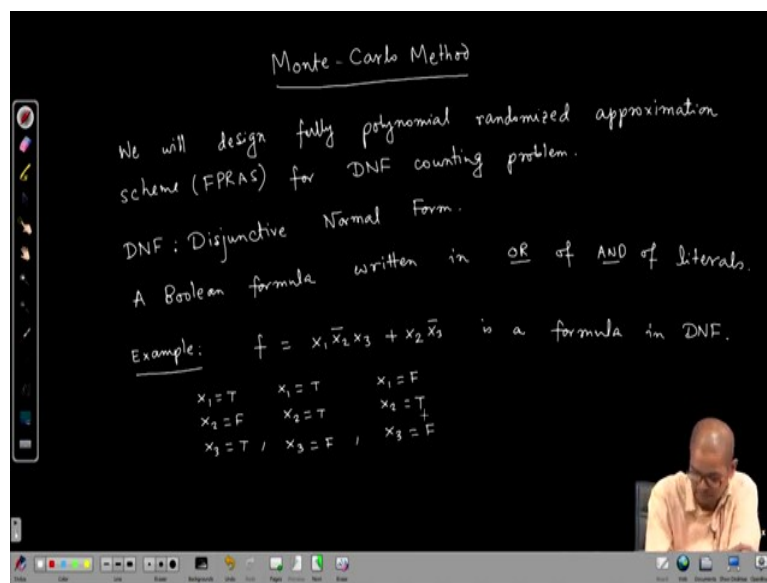 Monte-Carlo Method
We will design fully polynomial randomized approximation
scheme (FPRAS) for DNF counting problem.
DNF : Disjunctive Normal Form.
A Boolean formula written in OR of AND of literals.
Example: f = x₁ x̄₂ x₃ + x₂ x̄₃ is a formula in DNF.
x₁ = T x₁ = T x₁ = F
x₂ = F x₂ = T x₂ = T
x₃ = T , x₃ = F , x₃ = F